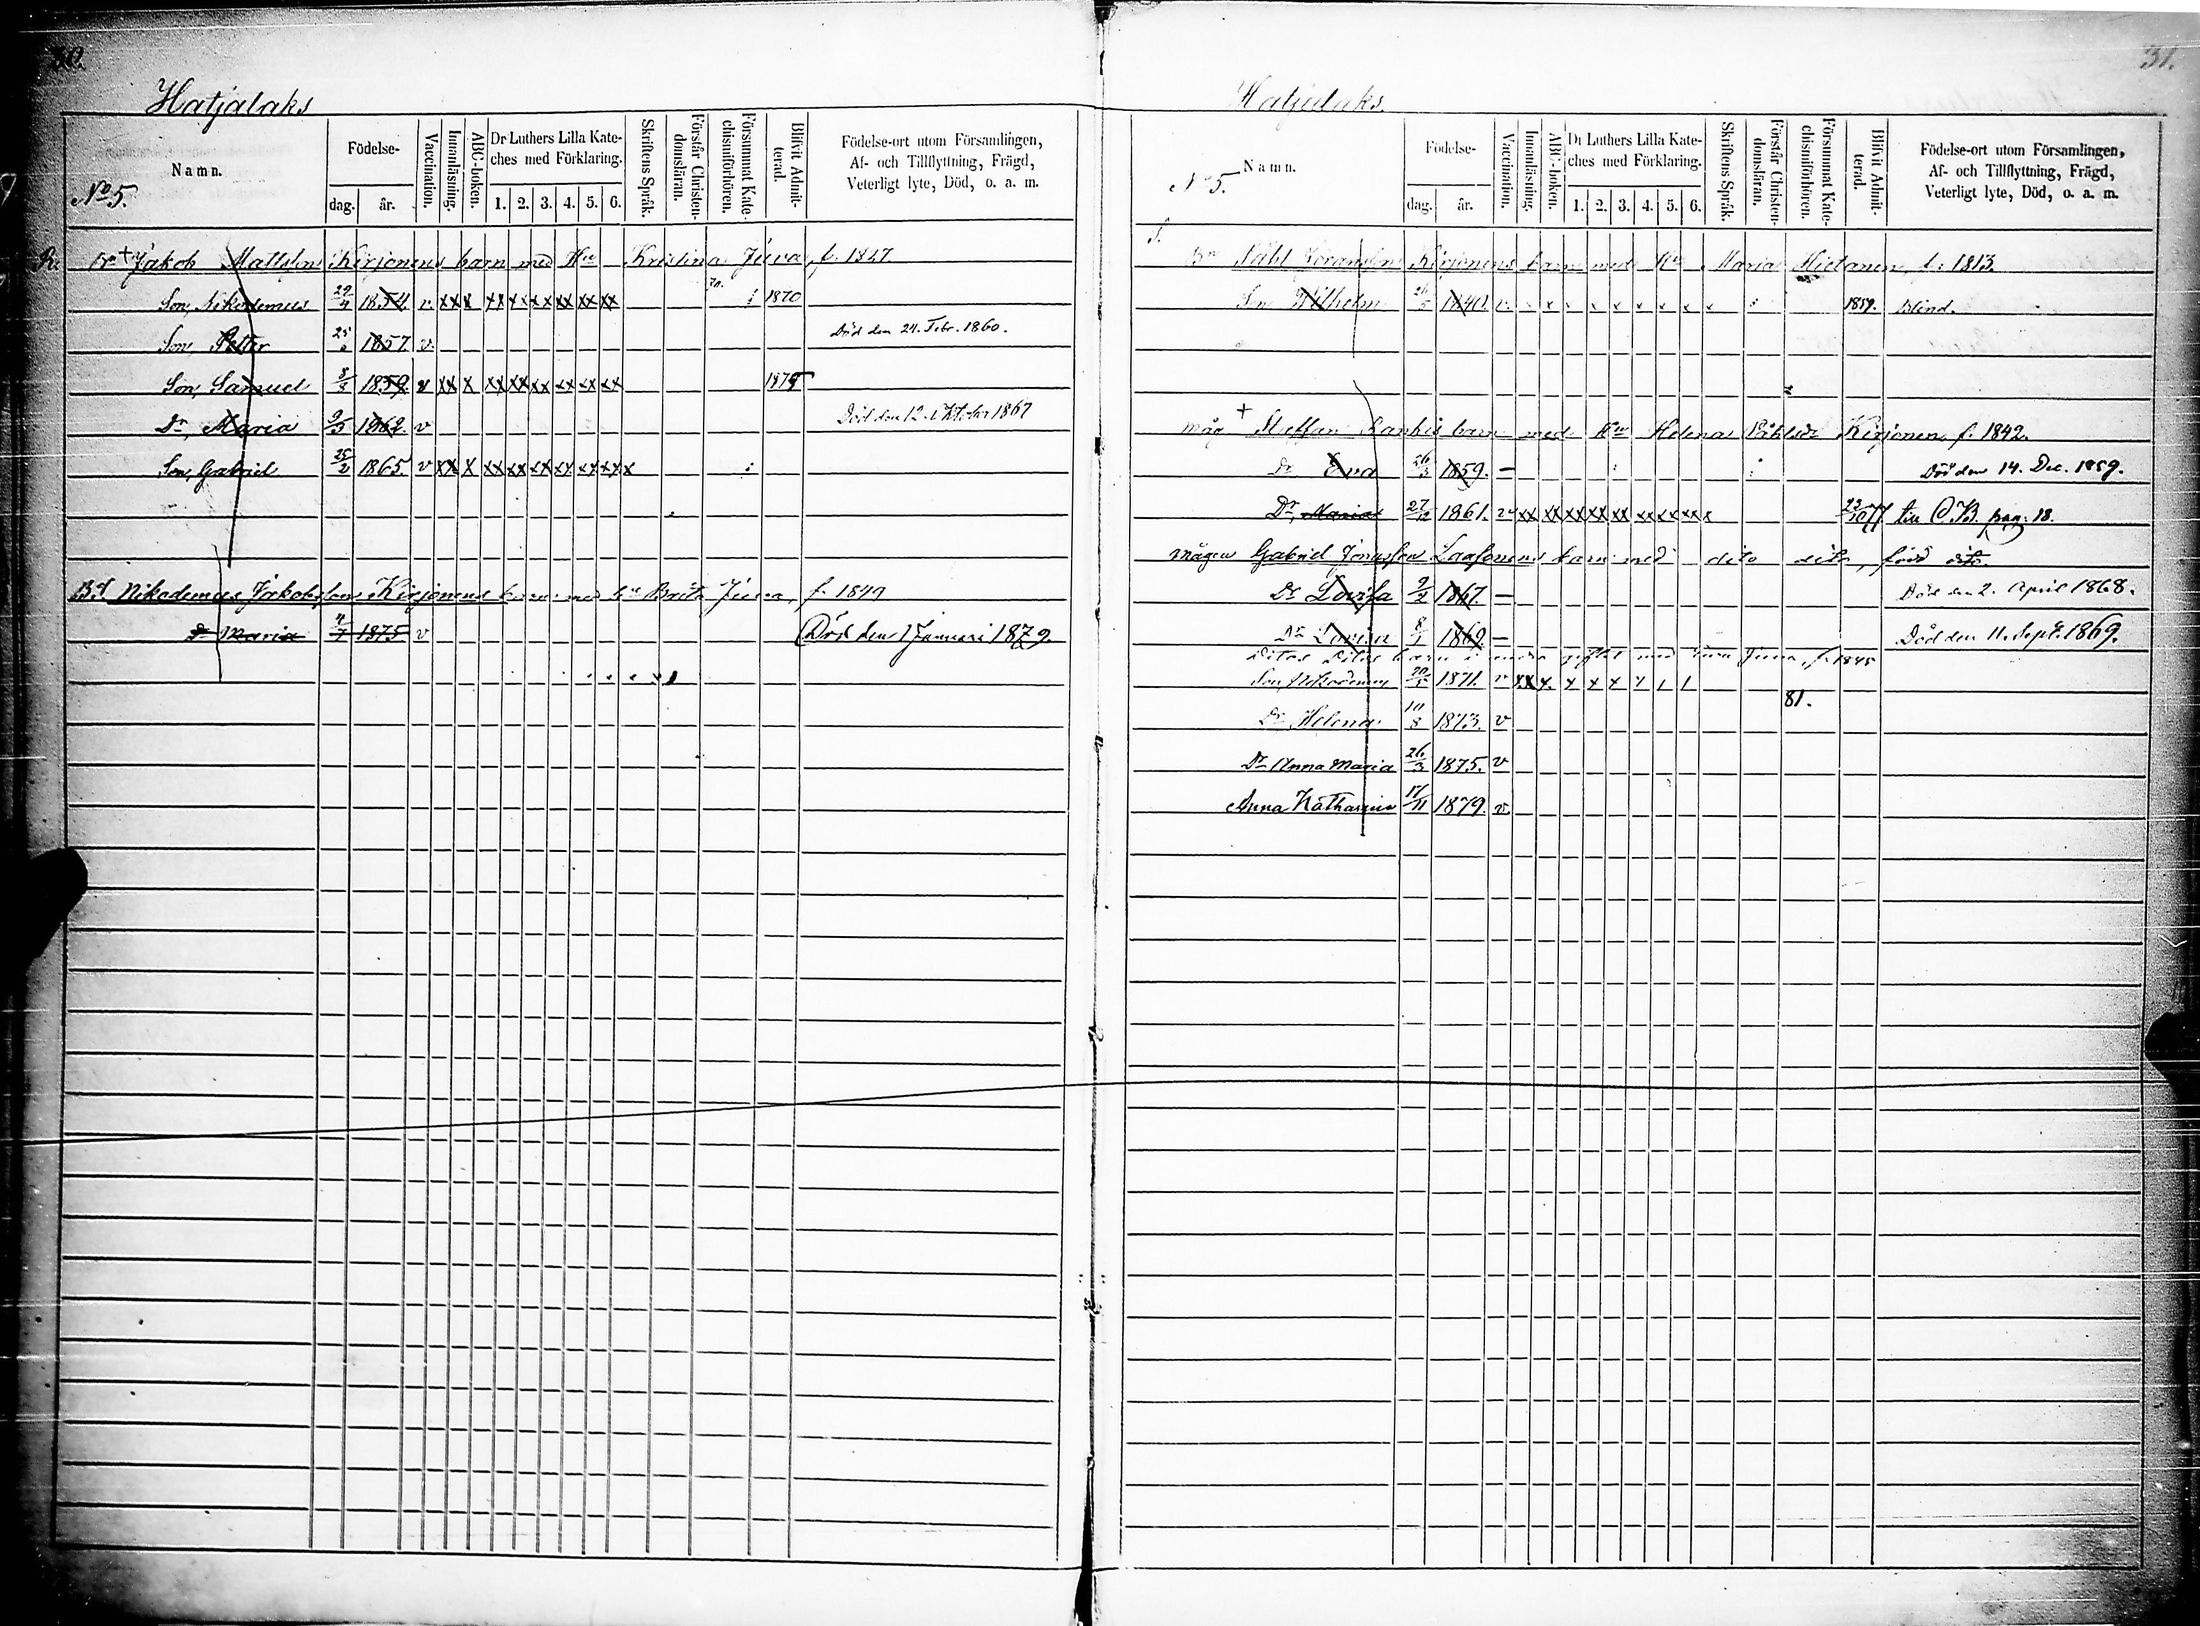 30.
Hatjalaks
Namn.
No 5.
Födelse-
dag. år.
Vaccination.
Innanläsning.
ABC-boken.
Dr Luthers Lilla Kate-
ches med Förklaring.
1. 2. 3. 4. 5. 6.
Skriftens Språk.
Förstår Christen-
domsläran.
Försummat Kate-
chismiförhören.
Blifvit Admit-
terad.
Födelse-ort utom Församlingen,
Af- och Tillflyttning, Frägd,
Veterligt lyte, Död, o. a. m.
R. Bn + Jakob Mattsson Kirjonens barn med Hu Kristina Juva, f. 1827
Son, Nikodemus 29/4 1854 v xx x xx xx xx xx xx xx 70. 1870
Son, Petter 1857 v. Död den 24. Febr. 1860.
Son, Samuel 1859 v xx x xx xx xx xx xx xx 1875
Dr, Maria 9/5 1862 v Död den 12. Oktober 1867
Son, Gabriel 25/2 1865. v xx x xx xx xx xx xx xx x
Nikodemus Jakobsson Kirjonens barn med hu Brita Juva, f. 1849
dr Maria 4/7 1875 v Död den 1 Januari 1879.
31.
Hatjalaks.
Namn.
No 5.
Födelse-
dag. år.
Vaccination.
Innanläsning.
ABC-boken.
Dr Luthers Lilla Kate-
ches med Förklaring.
1. 2. 3. 4. 5. 6.
Skriftens Språk.
Förstår Christen-
domsläran.
Försummat Kate-
chismiförhören.
Blifvit Admit-
terad.
Födelse-ort utom Församlingen,
Af- och Tillflyttning, Frägd,
Veterligt lyte, Död, o. a. m.
Bn Påhl Göransson Kirjonens barn med Hu Maria Hietanen, f: 1813.
Sn Wilhelm 26/5 1840. v. x x x x x x x x 1859. Blind.
måg + Staffan Rankis barn med Hu Helena Påhlsdr Kirjonen, f. 1842.
Dr Eva 26/3 1859. — Död den 14. Dec. 1859.
Dr, Maria 27/12 1861. v xx xx xx xx xx xx xx xx x 23/10 77 till C.B. pag: 18.
mågen Gabriel Jonasson Laasonens barn med dito dito, född dito.
Dr Lovisa 9/2 1867. — Död den 2. April 1868.
Dr Lovisa 8/1 1869. — Död den 11. Sept. 1869.
Ditos Ditos barn i andra giftet med Juva, f. 1845
Son, Nikodemus 20/5 1871. v xx x. x x x x
81.
Dr Helena 10/8 1873. v
Dr Anna Maria 26/3 1875. v
Anna Katharina 17/11 1879. v.